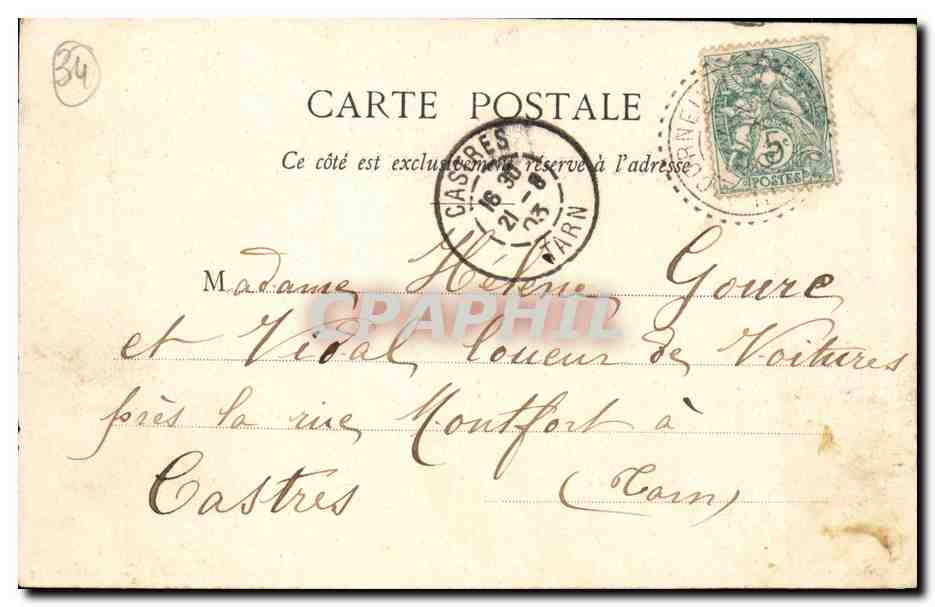 34
CARTE POSTALE
Ce côté est exclusivement réservé à l'adresse
CASTRES
16 30
21 - 8
03
TARN
5c
POSTES
Madame Hélène Gourc
et Vidal loueur de Voitures
près la rue Montfort à
Castres (Tarn)
CPAPHIL